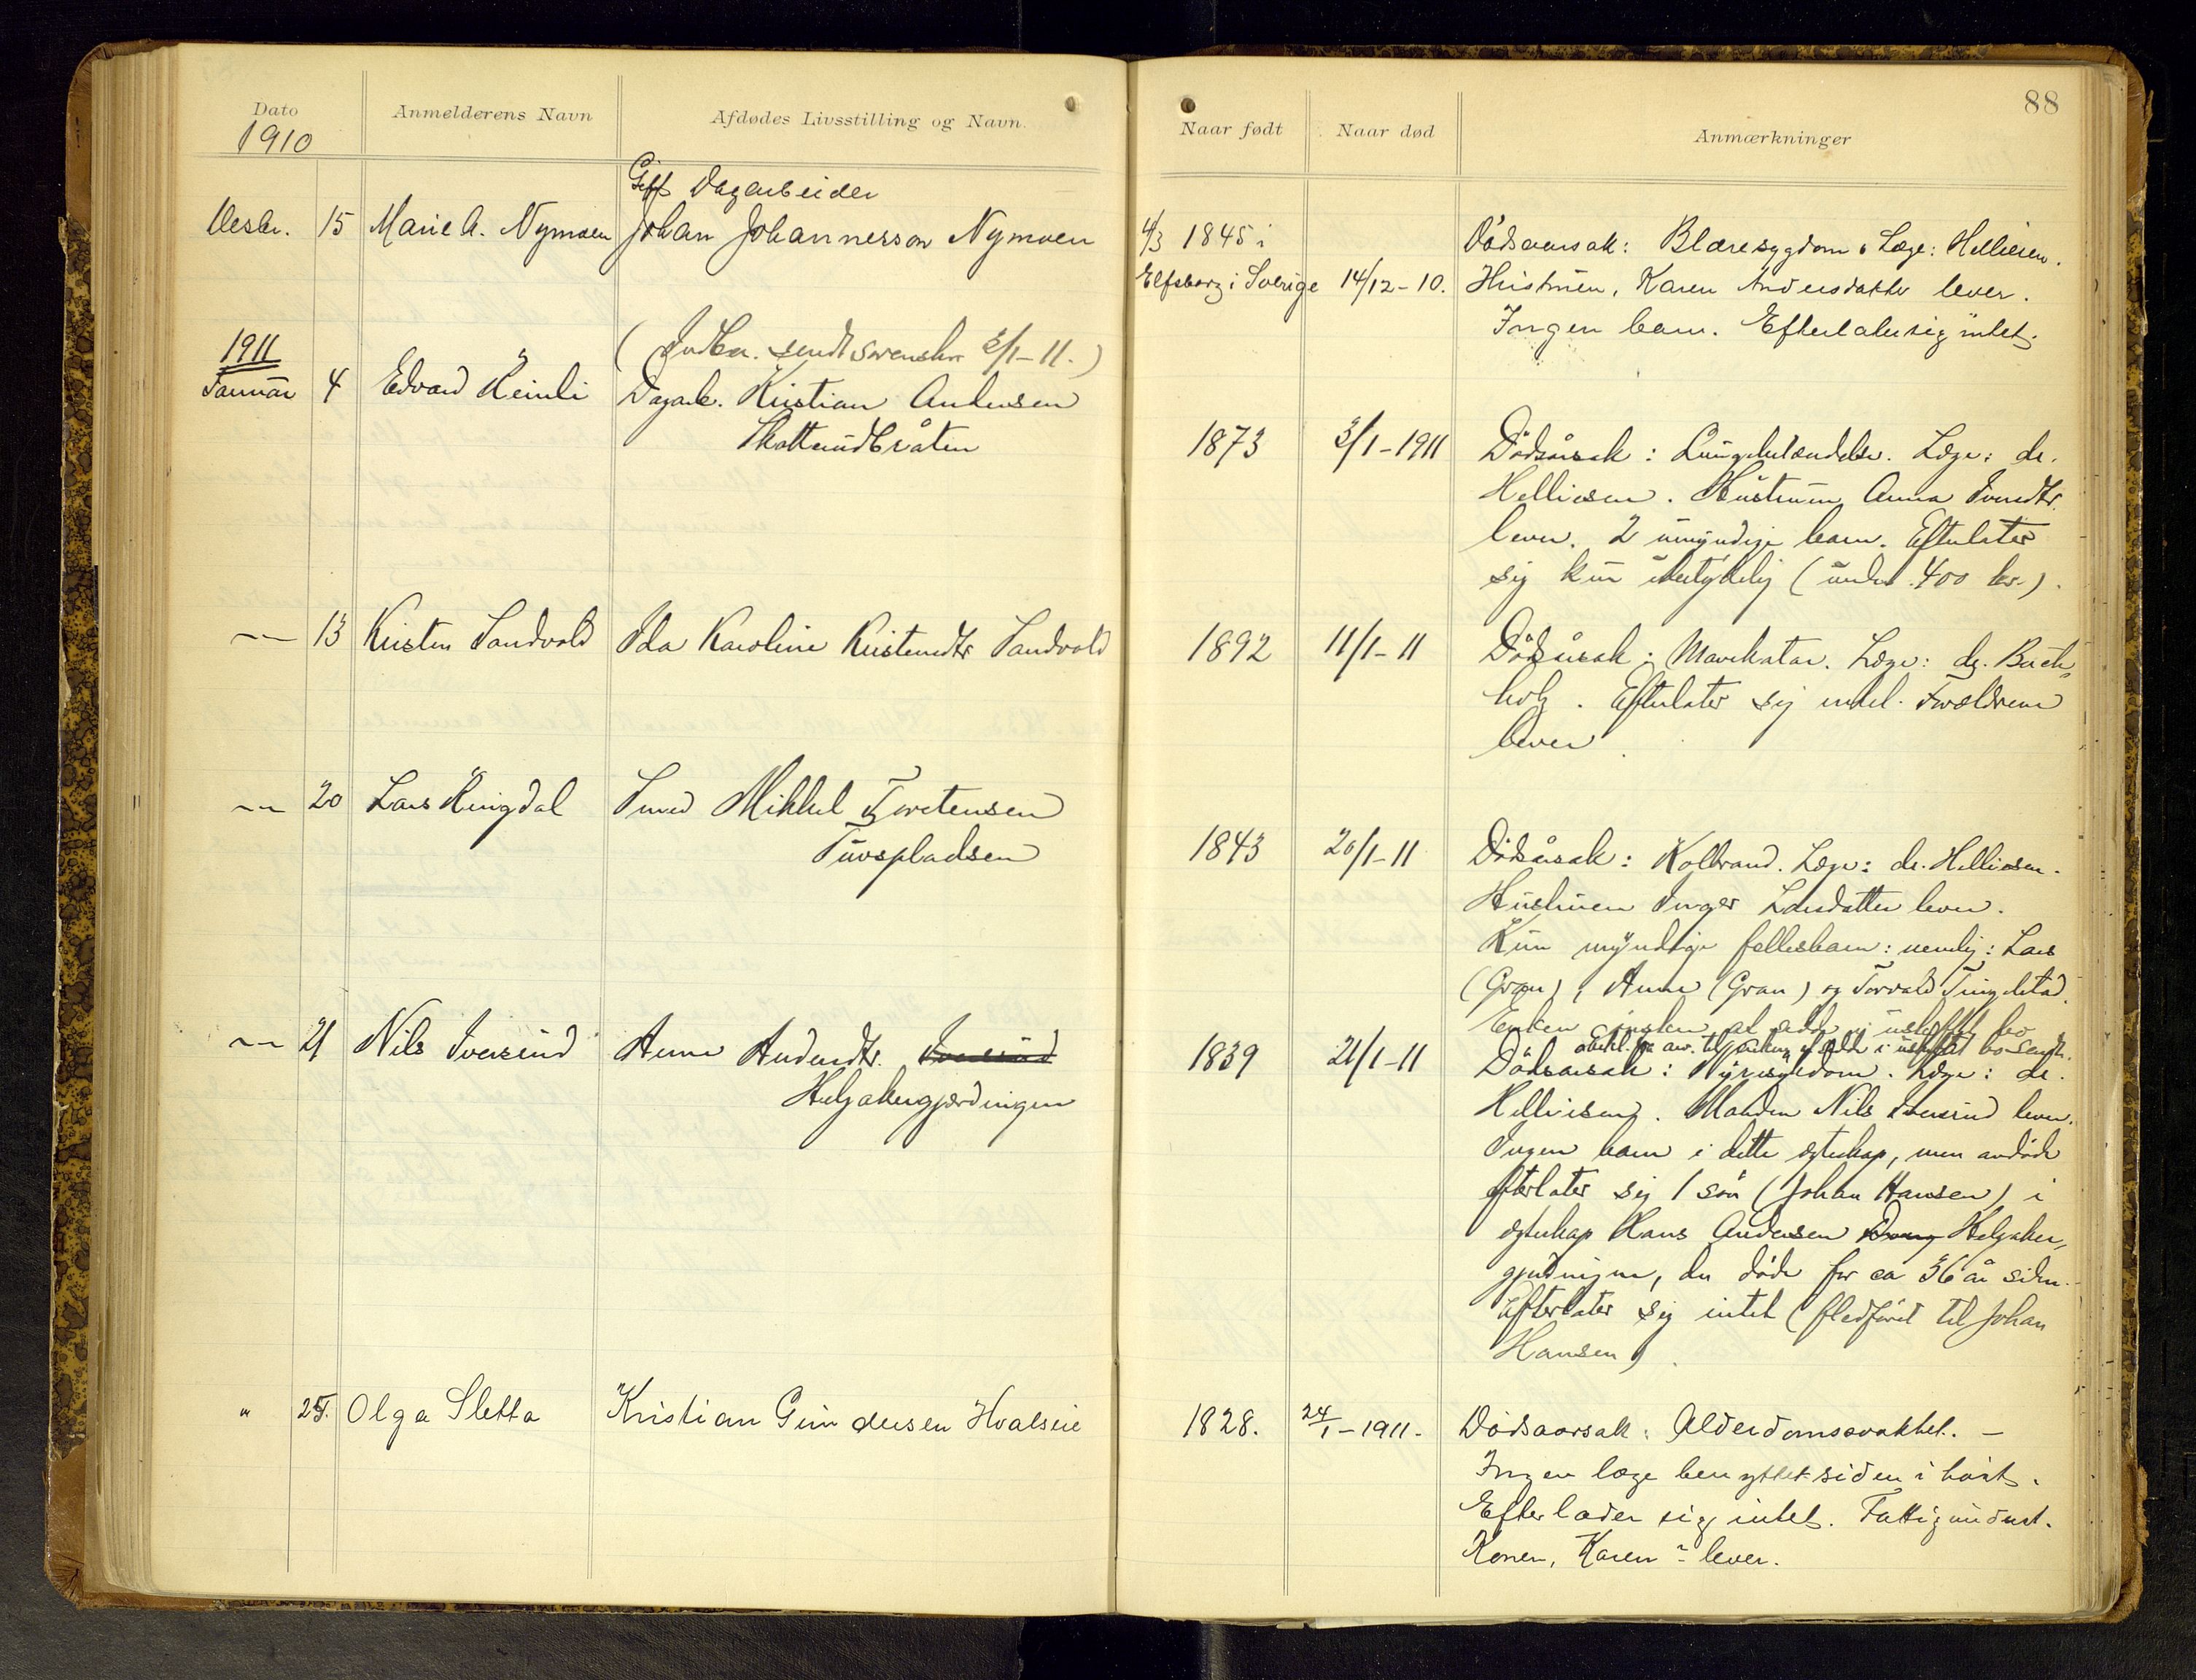 88
Dato Anmelderens Navn Afdødes Livsstilling og Navn. Naar født Naar død Anmærkninger
1910
Gift Dagarbeider
Desbr. 15 Marie A. Nymoen Johan Johannesson Nymoen
4/3 1845 i
Elfsborg i Sverige 14/12-10.
Dödsaarsak: Blæresygdom. Læge: Helliesen.
Hustruen, Karen Andersdatter lever.
Ingen barn. Efterlater sig intet.
(Indber. sendt svenske 3/1-11.)
1911
Januar 4 Edvard Heinli Dagarb. Kristian Andersen
1873 3/1-1911
Dödsårsak: Lungebetændelse. Læge: dr.
Helliesen. Hustruen Anna Iversdtr.
lever. 2 umyndige barn. Efterlater
sig kun ubetydelig (under 400 kr.).
—"— 13 Kristen Sandvold Ida Karoline Kristensdtr Sandvold
1892 11/1-11
Dödsårsak: Mavekatar. Læge: dr. Buch-
holz. Efterlater sig intet. Forældrene
lever.
—"— 20 Lars Ringdal Smed Mikkel Torstensen
Tuvspladsen
1843 20/1-11
Dödsårsak: Kolbrand. Læge: dr. Helliesen.
Hustruen Inger Larsdatter lever.
Kun myndige fellesbarn: nemlig: Lars
(Gran), Anne (Gran) og Torvald Tingelstad.
Enken ønsker at sidde i uskiftet bo
i uskiftet bo sendt.
—"— 21 Nils Iversrud Anne Andersdtr. Iversrud
Helgakergjærdingen
1839 21/1-11
Dödsaarsak: Nyresygdom. Læge: dr.
Helliesen. Manden Nils Iversrud lever.
Ingen barn i dette ægteskap, men avdöde
efterlater sig 1 sön (Johan Hansen) i
ægteskap Hans Andersen Helgaker-
gjerdingen, der döde for ca 36 år siden.
Efterlater sig intet (fledfört til Johan
Hansen).
" 25. Olga Sletta Kristian Gundersen Hvalseie
1828. 24/1-1911.
Dödsaarsak: Alderdomssvakhet. —
Ingen læge benyttet siden i höst.
Efterlader sig intet. Fattigunderst.
Konen, Karen ? lever.